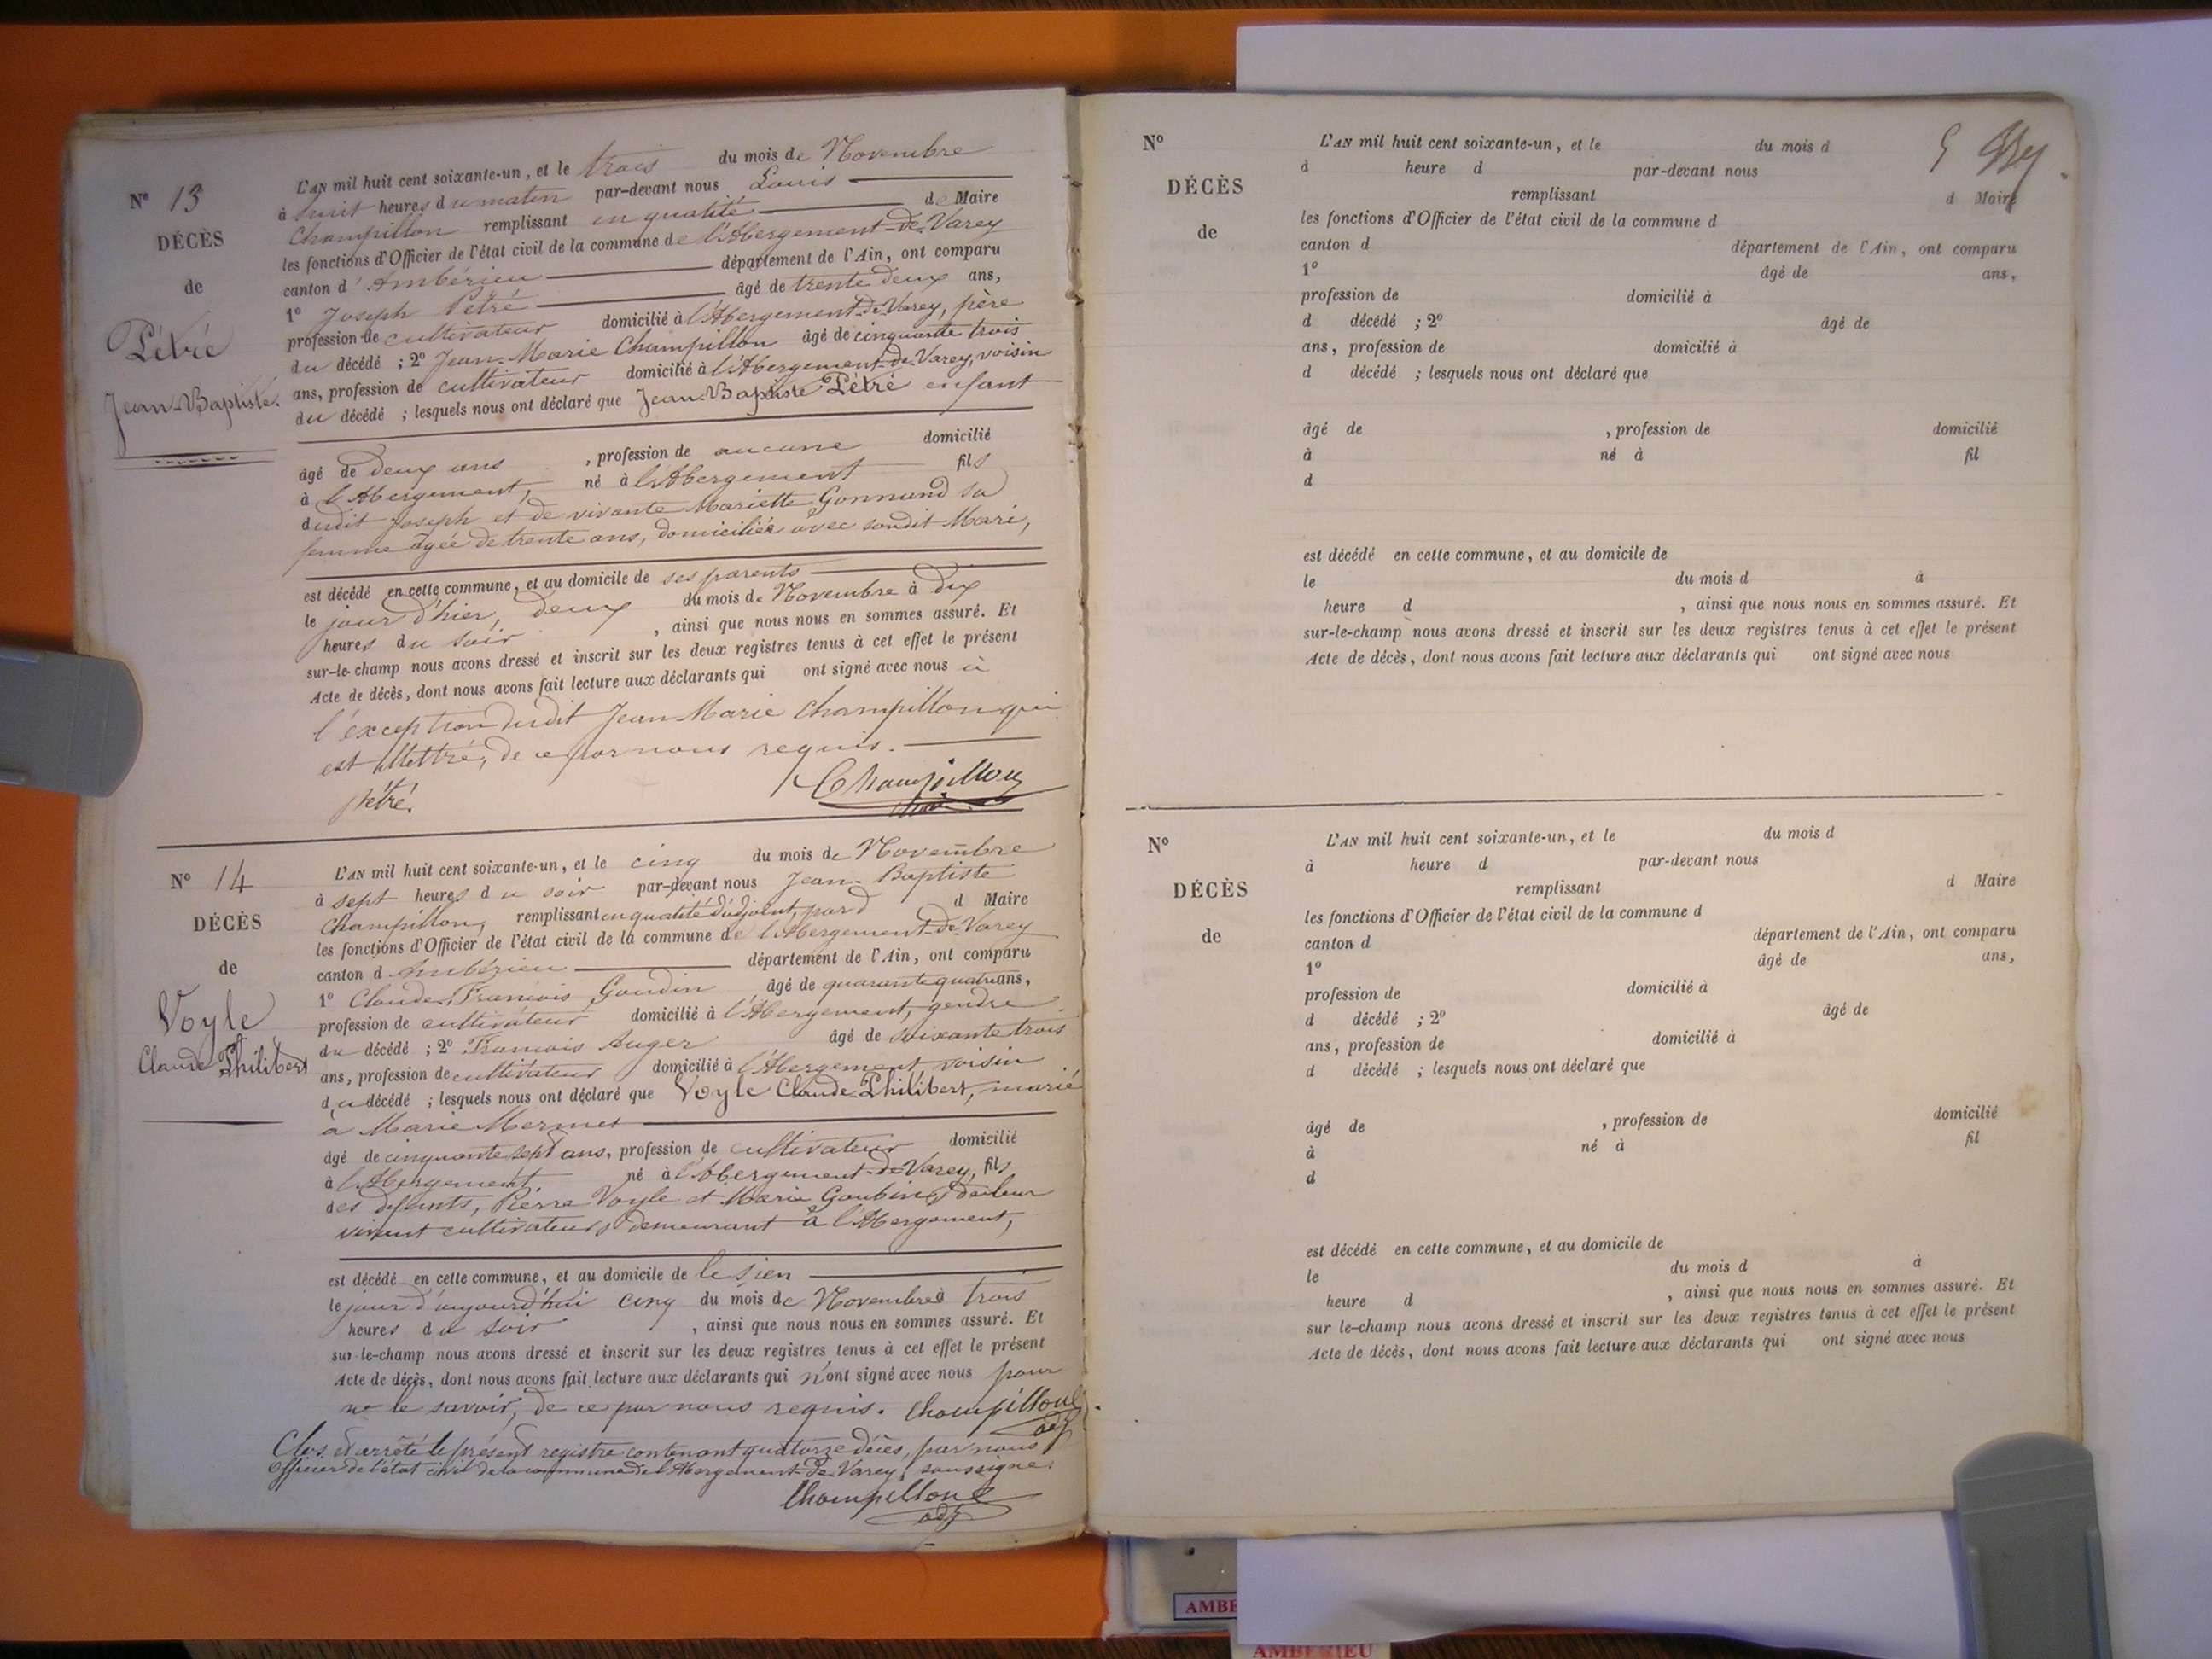 N° 13
DÉCÈS
de
Pétré
Jean-Baptiste.
L'AN mil huit cent soixante-un, et le trois du mois de Novembre
à huit heures du matin par-devant nous Louis
Champillon remplissant en qualité de Maire
les fonctions d'Officier de l'état civil de la commune de l'Abergement-de-Varey
canton d'Ambérieu département de l'Ain, ont comparu
1° Joseph Pétré âgé de trente deux ans,
profession de cultivateur domicilié à l'Abergement-de-Varey, père
du décédé ; 2° Jean-Marie Champillon âgé de cinquante trois
ans, profession de cultivateur domicilié à l'Abergement-de-Varey, voisin
du décédé ; lesquels nous ont déclaré que Jean-Baptiste Pétré enfant
âgé de deux ans , profession de aucune domicilié
à l'Abergement, né à l'Abergement fils
dudit Joseph et de vivante Mariette Gonnand sa
femme âgée de trente ans, domiciliée avec sondit Mari,
est décédé en cette commune, et au domicile de ses parents
le jour d'hier, deux du mois de Novembre à dix
heures du soir , ainsi que nous nous en sommes assuré. Et
sur-le-champ nous avons dressé et inscrit sur les deux registres tenus à cet effet le présent
Acte de décès, dont nous avons fait lecture aux déclarants qui ont signé avec nous à
l'exception dudit Jean Marie Champillon qui
est illettré, de ce par nous requis.
pétré. Champillon
N° 14
DÉCÈS
de
Voyle
Claude Philibert
L'AN mil huit cent soixante-un, et le cinq du mois de Novembre
à sept heures du soir par-devant nous Jean-Baptiste
Champillon, remplissant en qualité d'adjoint, d Maire
les fonctions d'Officier de l'état civil de la commune de l'Abergement-de-Varey
canton d Ambérieu département de l'Ain, ont comparu
1° Claude-François Goudin âgé de quarante quatre ans,
profession de cultivateur domicilié à l'Abergement, gendre
du décédé ; 2° François Auger âgé de soixante trois
ans, profession de cultivateur domicilié à l'Abergement voisin
du décédé ; lesquels nous ont déclaré que Voyle Claude Philibert, marié
à Marie Mermet
âgé de cinquante sept ans, profession de cultivateur domicilié
à l'Abergement né à l'Abergement-de-Varey, fils
des défunts, Pierre Voyle et Marie de leur
vivant cultivateurs demeurant à l'Abergement,
est décédé en cette commune, et au domicile de le sien
le jour d'aujourd'hui cinq du mois de Novembre à trois
heures du soir , ainsi que nous nous en sommes assuré. Et
sur-le-champ nous avons dressé et inscrit sur les deux registres tenus à cet effet le présent
Acte de décès, dont nous avons fait lecture aux déclarants qui n'ont signé avec nous pour
ne le savoir, de ce par nous requis. Champillon
adj
Clos et arrêté le présent registre contenant quatorze décès, par nous
Officier de l'état civil de la commune de l'Abergement-de-Varey, soussigné
Champillon
adj
N°
DÉCÈS
de
L'AN mil huit cent soixante-un, et le du mois d
à heure d par-devant nous
remplissant d Maire
les fonctions d'Officier de l'état civil de la commune d
canton d département de l'Ain, ont comparu
1° âgé de ans,
profession de domicilié à
d décédé ; 2° âgé de
ans, profession de domicilié à
d décédé ; lesquels nous ont déclaré que
âgé de , profession de domicilié
à né à fil
d
est décédé en cette commune, et au domicile de
le du mois d à
heure d , ainsi que nous nous en sommes assuré. Et
sur-le-champ nous avons dressé et inscrit sur les deux registres tenus à cet effet le présent
Acte de décès, dont nous avons fait lecture aux déclarants qui ont signé avec nous
N°
DÉCÈS
de
L'AN mil huit cent soixante-un, et le du mois d
à heure d par-devant nous
remplissant d Maire
les fonctions d'Officier de l'état civil de la commune d
canton d département de l'Ain, ont comparu
1° âgé de ans,
profession de domicilié à
d décédé ; 2° âgé de
ans, profession de domicilié à
d décédé ; lesquels nous ont déclaré que
âgé de , profession de domicilié
à né à fil
d
est décédé en cette commune, et au domicile de
le du mois d à
heure d , ainsi que nous nous en sommes assuré. Et
sur le-champ nous avons dressé et inscrit sur les deux registres tenus à cet effet le présent
Acte de décès, dont nous avons fait lecture aux déclarants qui ont signé avec nous
AMBE
AMBERIEU